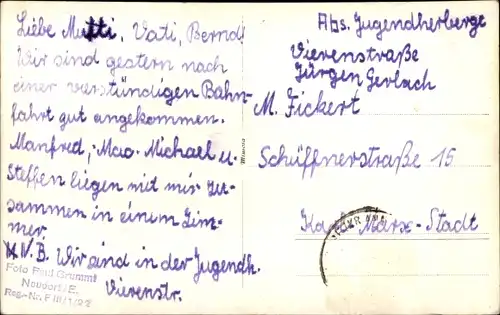 Liebe Mutti, Vati, Bernd!
Wir sind gestern nach
einer verstündigen Bahn-
fahrt gut angekommen.
Manfred, Mao. Michael u.
Steffen liegen mit mir zu-
sammen in einem Zim-
mer.
N.B. Wir sind in der Jugendh.
Vierenstr.
Foto Paul Grummt
Neudorf/E.
Reg.-Nr. F III/1/22
Abs. Jugendherberge
Vierenstraße
Jürgen Gerlach
M. Fickert
Schüffnerstraße 15
Karl-Marx-Stadt